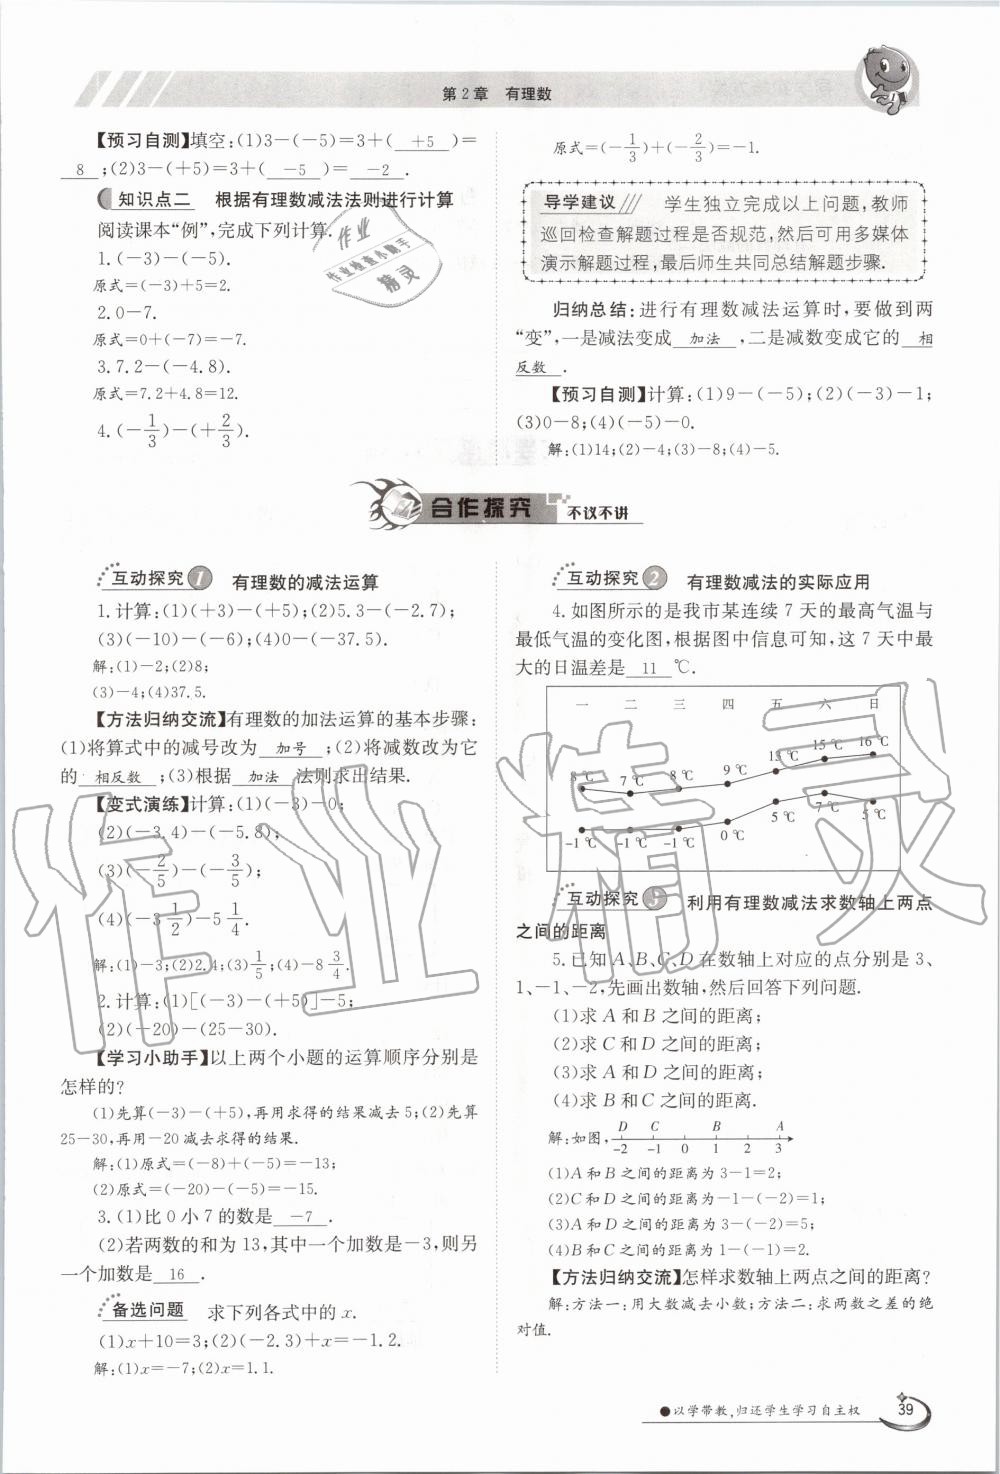 第2章 有理数
【预习自测】填空:(1)3-(-5)=3+( +5 )=
8 ;(2)3-(+5)=3+( -5 )= -2 .
知识点二 根据有理数减法法则进行计算
阅读课本“例”,完成下列计算.
1.(-3)-(-5).
原式=(-3)+5=2.
2.0-7.
原式=0+(-7)=-7.
3.7.2-(-4.8).
原式=7.2+4.8=12.
4.(-1/3)-(+2/3).
原式=(-1/3)+(-2/3)=-1.
导学建议 学生独立完成以上问题,教师
巡回检查解题过程是否规范,然后可用多媒体
演示解题过程,最后师生共同总结解题步骤.
归纳总结:进行有理数减法运算时,要做到两
“变”,一是减法变成 加法 ,二是减数变成它的 相
反数 .
【预习自测】计算:(1)9-(-5);(2)(-3)-1;
(3)0-8;(4)(-5)-0.
解:(1)14;(2)-4;(3)-8;(4)-5.
合作探究 不议不讲
互动探究1 有理数的减法运算
1.计算:(1)(+3)-(+5);(2)5.3-(-2.7);
(3)(-10)-(-6);(4)0-(-37.5).
解:(1)-2;(2)8;
(3)-4;(4)37.5.
【方法归纳交流】有理数的加法运算的基本步骤:
(1)将算式中的减号改为 加号 ;(2)将减数改为它
的 相反数 ;(3)根据 加法 法则求出结果.
【变式演练】计算:(1)(-3)-0;
(2)(-3.4)-(-5.8);
(3)(-2/5)-(-3/5);
(4)(-3 1/2)-5 1/4.
解:(1)-3;(2)2.4;(3)1/5;(4)-8 3/4.
2.计算:(1)[(-3)-(+5)]-5;
(2)(-20)-(25-30).
【学习小助手】以上两个小题的运算顺序分别是
怎样的?
(1)先算(-3)-(+5),再用求得的结果减去5;(2)先算
25-30,再用-20减去求得的结果.
解:(1)原式=(-8)+(-5)=-13;
(2)原式=(-20)-(-5)=-15.
3.(1)比0小7的数是 -7 .
(2)若两数的和为13,其中一个加数是-3,则另
一个加数是 16 .
备选问题 求下列各式中的x.
(1)x+10=3;(2)(-2.3)+x=-1.2.
解:(1)x=-7;(2)x=1.1.
互动探究2 有理数减法的实际应用
4.如图所示的是我市某连续7天的最高气温与
最低气温的变化图,根据图中信息可知,这7天中最
大的日温差是 11 ℃.
一 二 三 四 五 六 日
8℃ 7℃ 8℃ 9℃ 13℃ 15℃ 16℃
-1℃ -1℃ -1℃ 0℃ 5℃ 7℃ 5℃
互动探究3 利用有理数减法求数轴上两点
之间的距离
5.已知A、B、C、D在数轴上对应的点分别是3、
1、-1、-2,先画出数轴,然后回答下列问题.
(1)求A和B之间的距离;
(2)求C和D之间的距离;
(3)求A和D之间的距离;
(4)求B和C之间的距离.
D C B A
解:如图, -2 -1 0 1 2 3
(1)A和B之间的距离为3-1=2;
(2)C和D之间的距离为-1-(-2)=1;
(3)A和D之间的距离为3-(-2)=5;
(4)B和C之间的距离为1-(-1)=2.
【方法归纳交流】怎样求数轴上两点之间的距离?
解:方法一:用大数减去小数;方法二:求两数之差的绝
对值.
●以学带教,归还学生学习自主权
39
作业
作业检查小助手
精灵
作业精灵